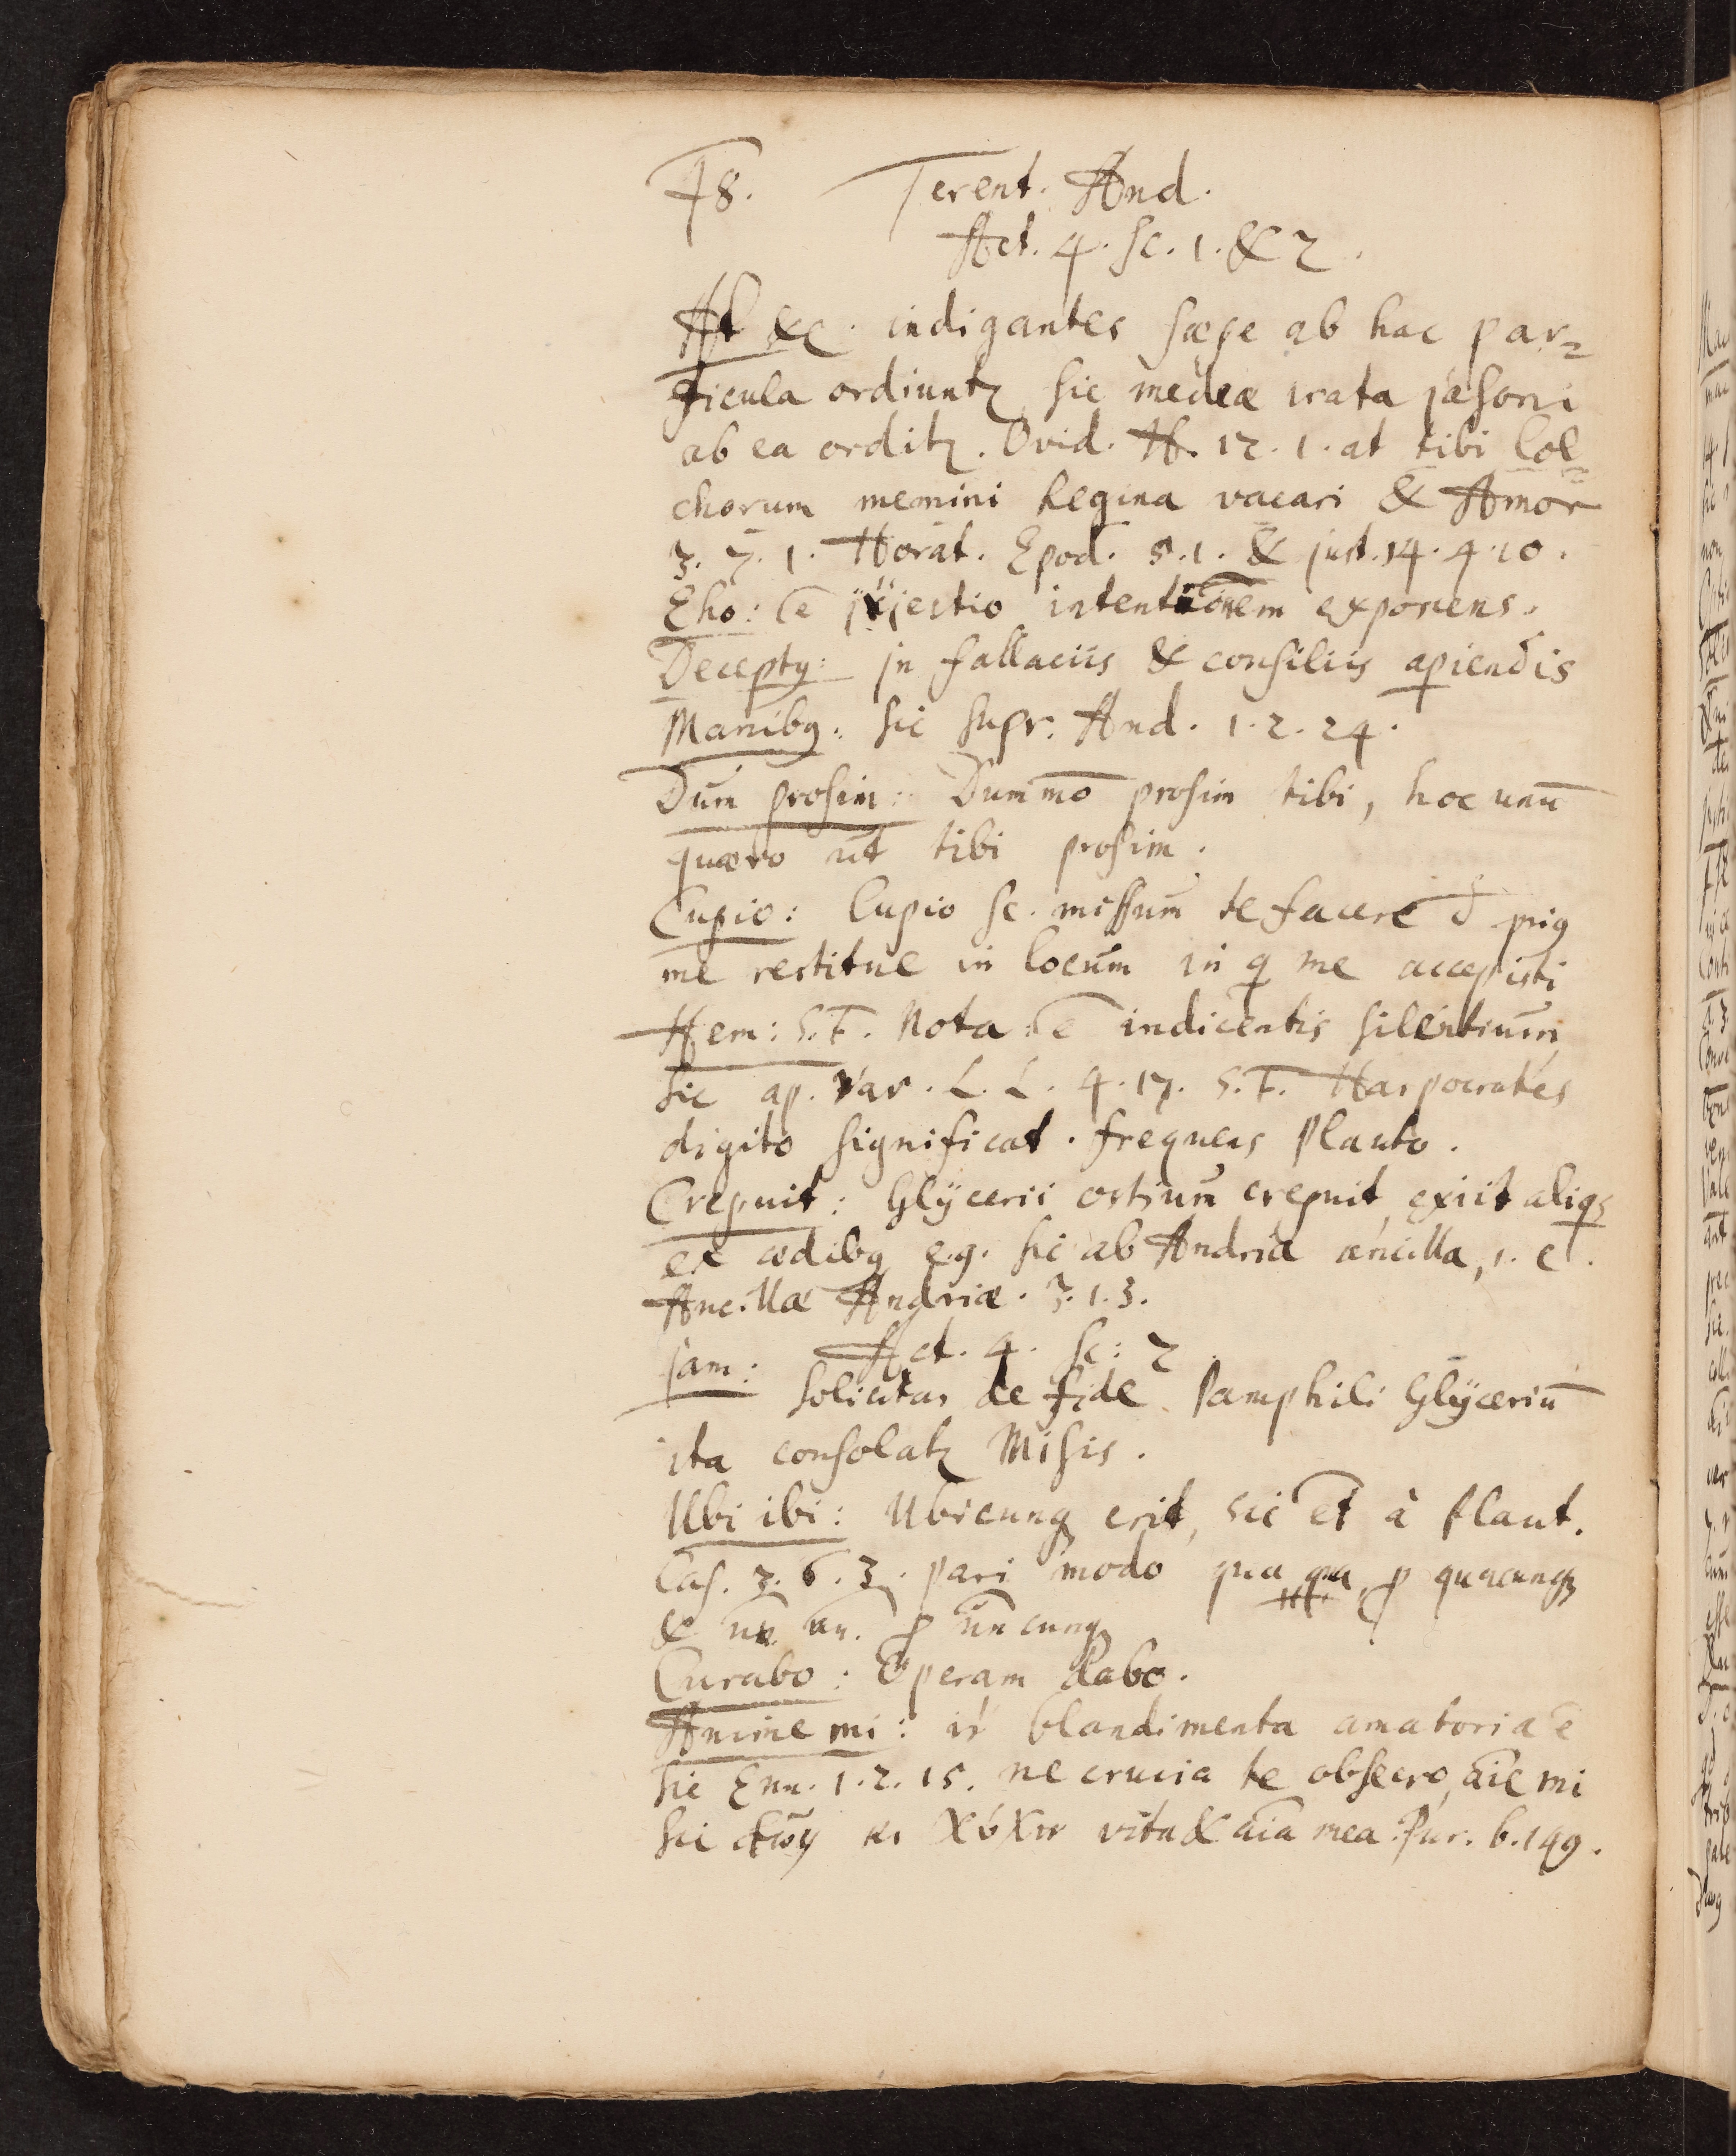 48. Terent. And.
Act. 4. sc. 1. & 2.
At &c. indigantes sæpe ab hac par=
ticula ordiuntꝛ sic medea irata jasoni
ab ea orditꝛ. Ovid. H. 12. 1. at tibi Col=
chorum memini Regina vacari & Amor
3. 7. 1. Horat. Epod. 5. 1. & just. 14. 4. 10.
Eho: ē jxjectio intentionem exponens.
Deceptꝰ: jn fallaciis & consiliis apiendis
Manibꝰ: sic supr. And. 1. 2. 24.
Dum prosim: Dummō prosim tibi, hoc unū
quæro ut tibi prosim.
Cupio: Cupio sc. missum te facere
me restitue in locum in q me accepisti
Hem: S.T. Nota ē indicentis silentium
sic ap. Var. L. L. 4. 17. S.T. Harpocrates
digito significat. frequens Plauto.
Crepuit: Glÿcerii ostium crepuit, exiit aliqs
ex ædibꝰ e.g. sic ab Andria ancilla, i. e.
Ancillæ Andriæ. 3. 1. 3.
Act. 4. sc: 2
jam: solicitas de fide Pamphili Glÿceriū
ita consolatꝛ Misis.
Ubi ibi: Ubicunqꝫ erit, sic et à Plaut.
Cas. 3. 6. 3. pari modo qua qua, ꝓ quacunqꝫ
& un un. ꝓ uncunqꝫ
Curabo: Operam dabo.
Anime mi: blandimenta amatoria ē
sic Eun. 1. 2. 15. ne crucia te obsecro, aīe mi
sic vita & aīa mea. Juv. 6. 149.